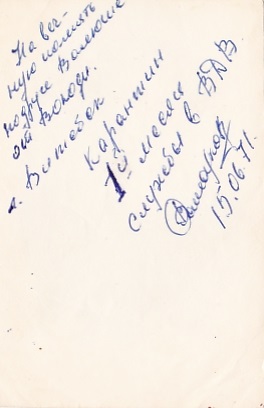 На веч-
ную память
подруге Валюше
от Володи.
г. Витебск
Карантин
1й месяц
службы в ВДВ
15.06.71.